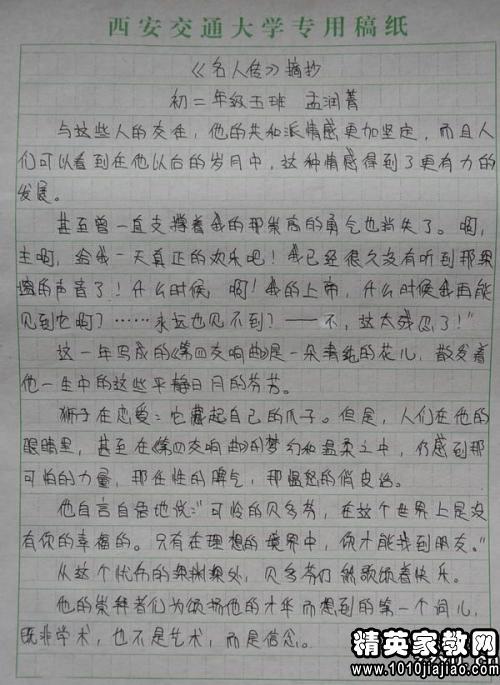 西安交通大学专用稿纸
《名人传》摘抄
初二年级五班 孟润菁
与这些人的交往，他的共和派情感更加坚定，而且人
们可以看到在他以后的岁月中，这种情感得到了更有力的
发展。
甚至曾一直支撑着我的那崇高的勇气也消失了。啊，
主啊，给我一天真正的欢乐吧！我已经很久没有听到那深
邃的声音了！什么时候，啊！我的上帝，什么时候我再能
见到它啊？……永远也见不到？——不，这太残忍了！”
这一年写成的《第四交响曲》是一朵清纯的花儿，散发着
他一生中的这些平静日月的芬芳。
狮子在恋爱：它藏起自己的爪子。但是，人们在他的
眼睛里，甚至在《第四交响曲》的梦幻和温柔之中，仍感到那
可怕的力量，那任性的脾气，那愠怒的俏皮话。
他自言自语地说：“可怜的贝多芬，在这个世界上是没
有你的幸福的。只有在理想的境界中，你才能找到朋友。”
从这个忧伤的深渊深处，贝多芬们 歌颂着快乐。
他的崇拜者们为颂扬他的才华而想到的第一个词儿，
既非学术，也不是艺术，而是信念。
精英家教网
www.1010jiajiao.com